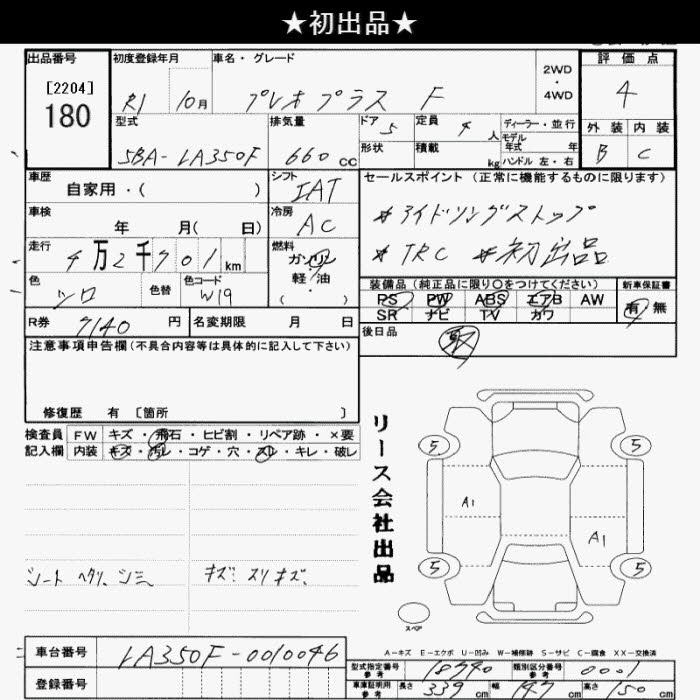 ★初出品★
出品番号 初度登録年月 車名・グレード 2WD・4WD 評価点
[2204]
180 R1 10月 プレオプラス F 4
型式 排気量 ドア 5 定員 4人 ディーラー・並行 外装 内装
5BA-LA350F 660cc 形状 積載 kg モデル年式 年 B C
ハンドル 左・右
車歴 シフト セールスポイント (正常に機能するものに限ります)
自家用・( ) IAT
車検 冷房 #アイドリングストップ
年 月( 日) AC #TRC #初出品
走行 燃料
4万2千701km ガソリン
軽・油
・( )
色 色替 色コード 装備品(純正品に限り○をつけてください) 新車保証書
シロ W19 PS PW ABS エアB AW 有 無
SR ナビ TV カワ
R券 7140円 名変期限 月 日 後日品
取
注意事項申告欄(不具合内容等は具体的に記入して下さい)
修復歴 有 [箇所 ]
検査員 FW キズ・飛石・ヒビ割・リペア跡・×要
記入欄 内装 キズ・汚レ・コゲ・穴・スレ・キレ・破レ
リース会社出品
5 5
A1 A1
5 5
シート ヘタリ、シミ キズ スリキズ、
スペア
A-キズ E-エクボ U-凹み W-補修跡 S-サビ C-腐食 XX-交換済
車台番号 LA350F-0010046
型式指定番号 参考 18740 類別区分番号 参考 0001
登録番号
車庫証明用 参考 長さ 339cm 幅 147cm 高さ 150cm